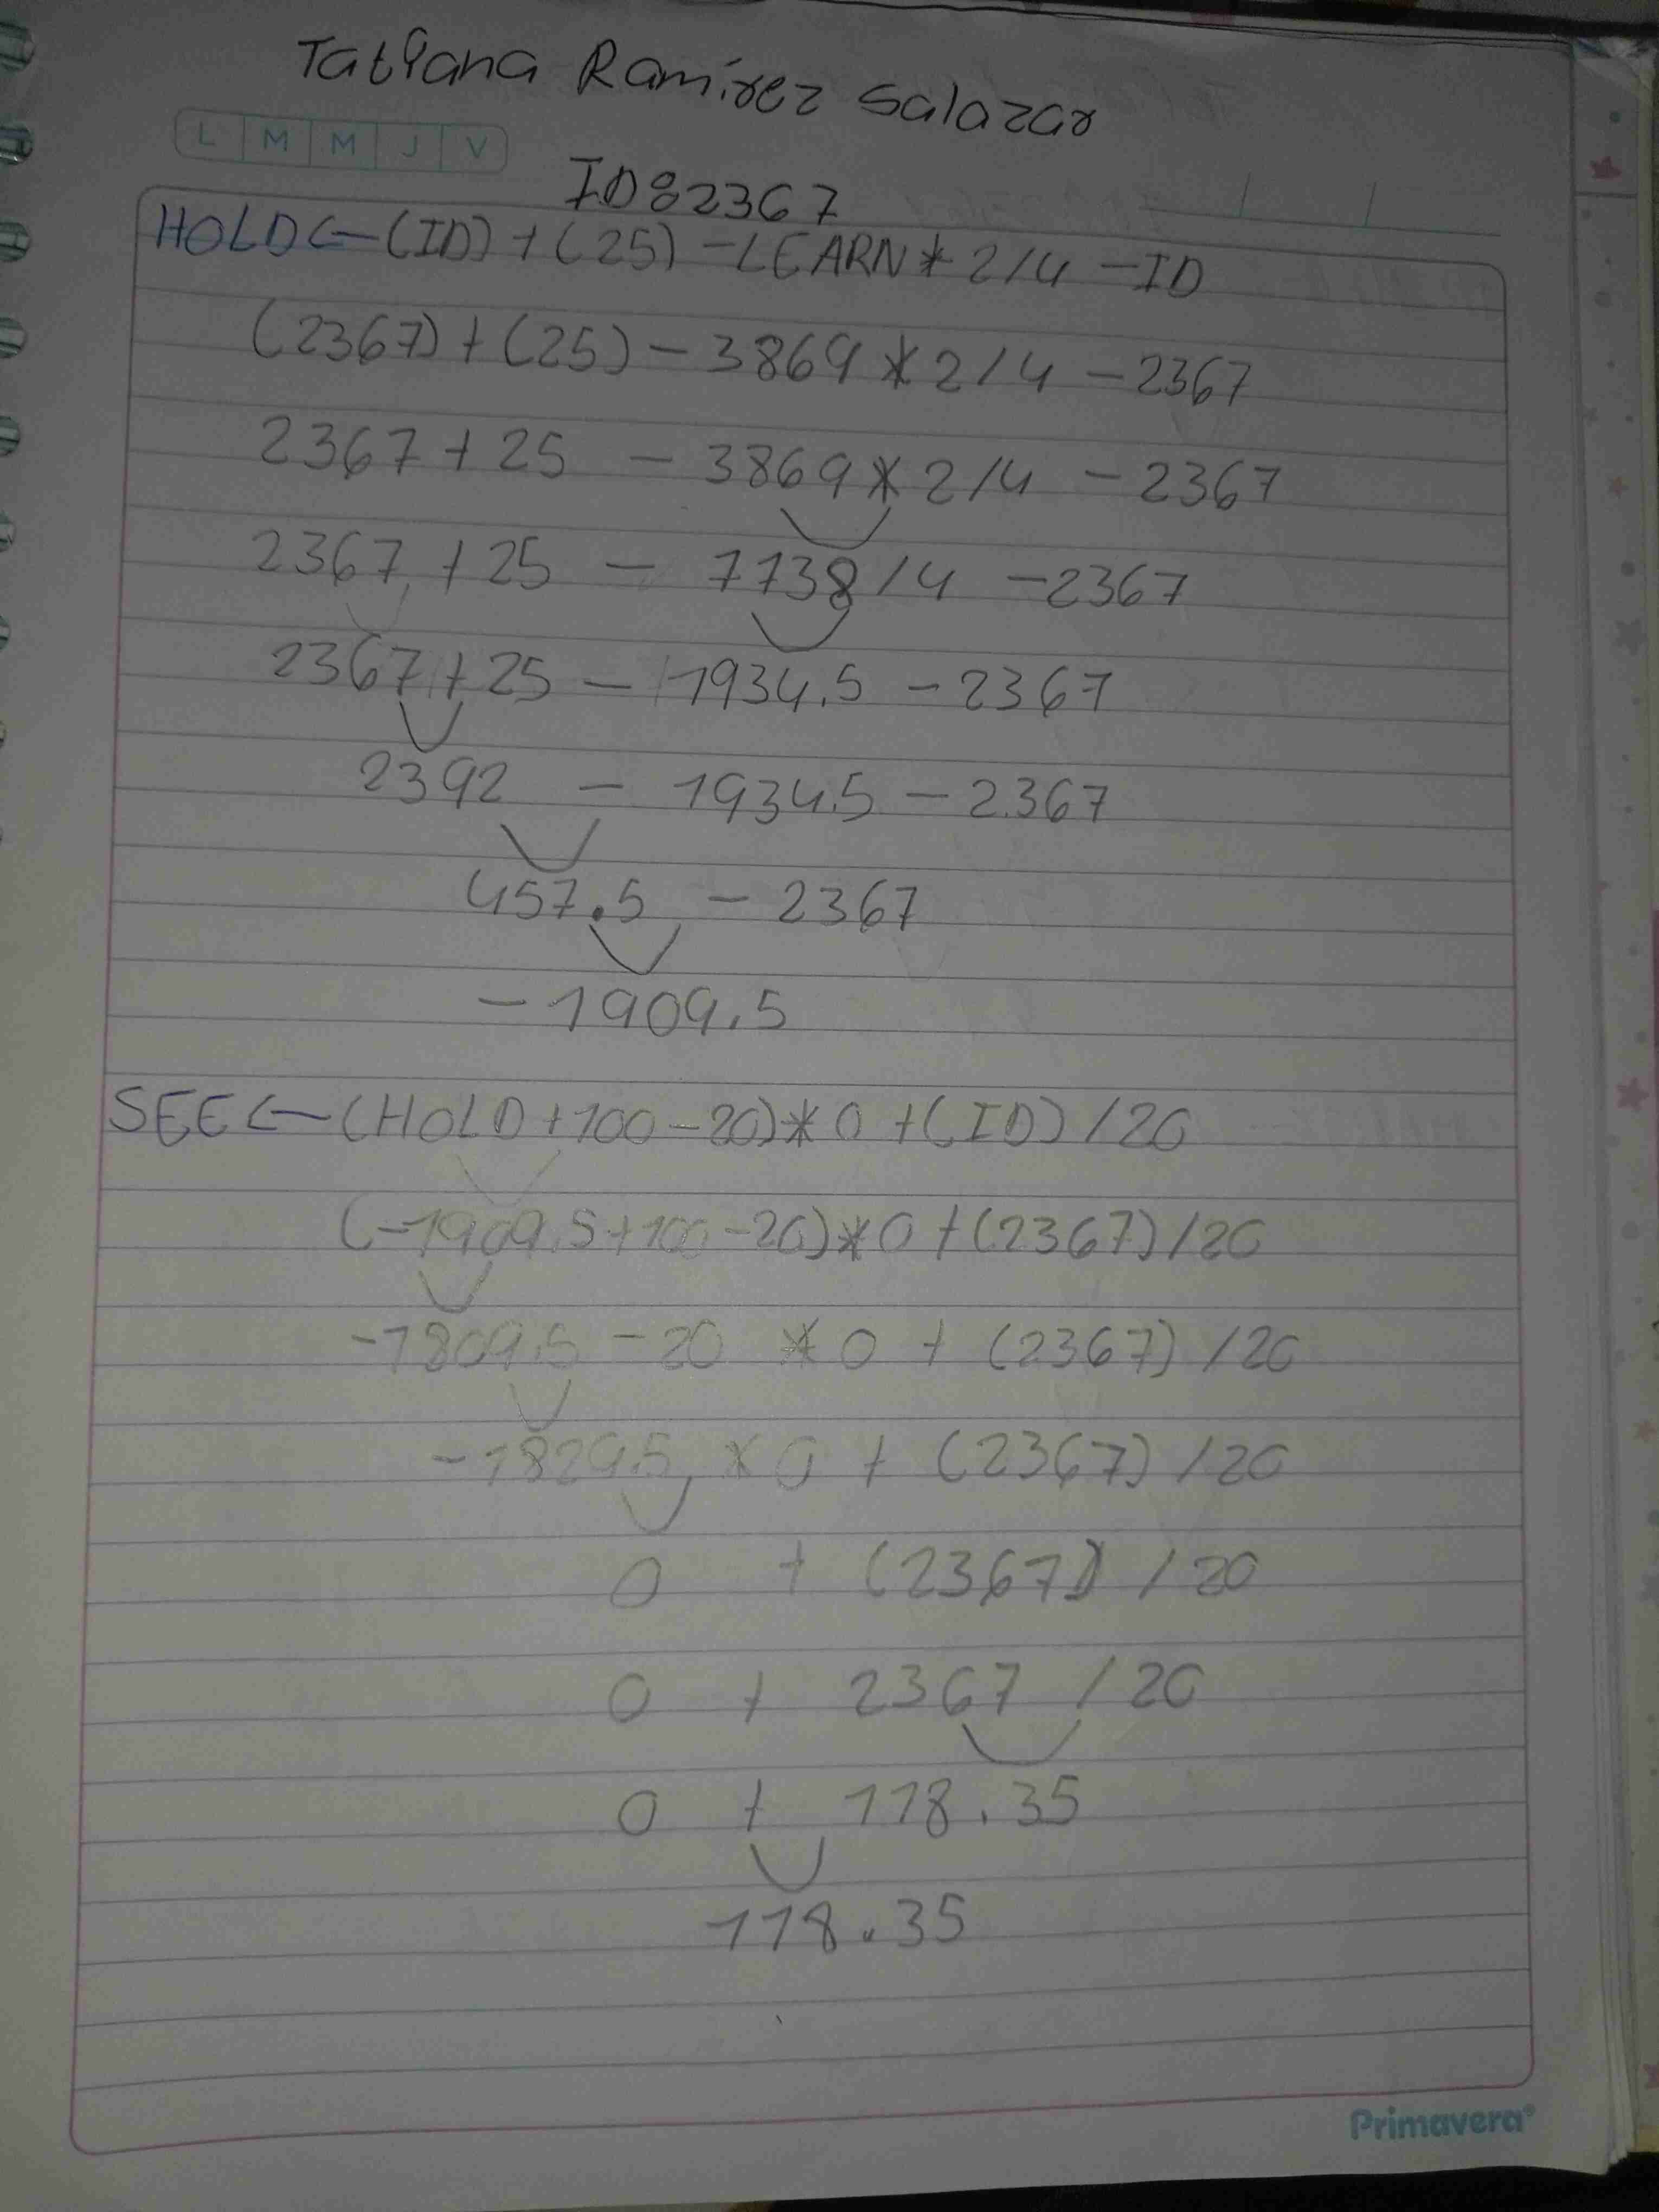 Tatiana Ramírez Salazar
L M M J V
ID: 2367
HOLD<—(ID)+(25)-LEARN*2/4-ID
(2367)+(25)-3869*2/4-2367
2367+25-3869*2/4-2367
2367+25-7738/4-2367
2367+25-1934.5-2367
2392-1934.5-2367
457.5-2367
-1909.5
SEE<—(HOLD+100-20)*0+(ID)/20
(-1909.5+100-20)*0+(2367)/20
-1809.5-20*0+(2367)/20
-1829.5*0+(2367)/20
0+(2367)/20
0+2367/20
0+118.35
118.35
Primavera®